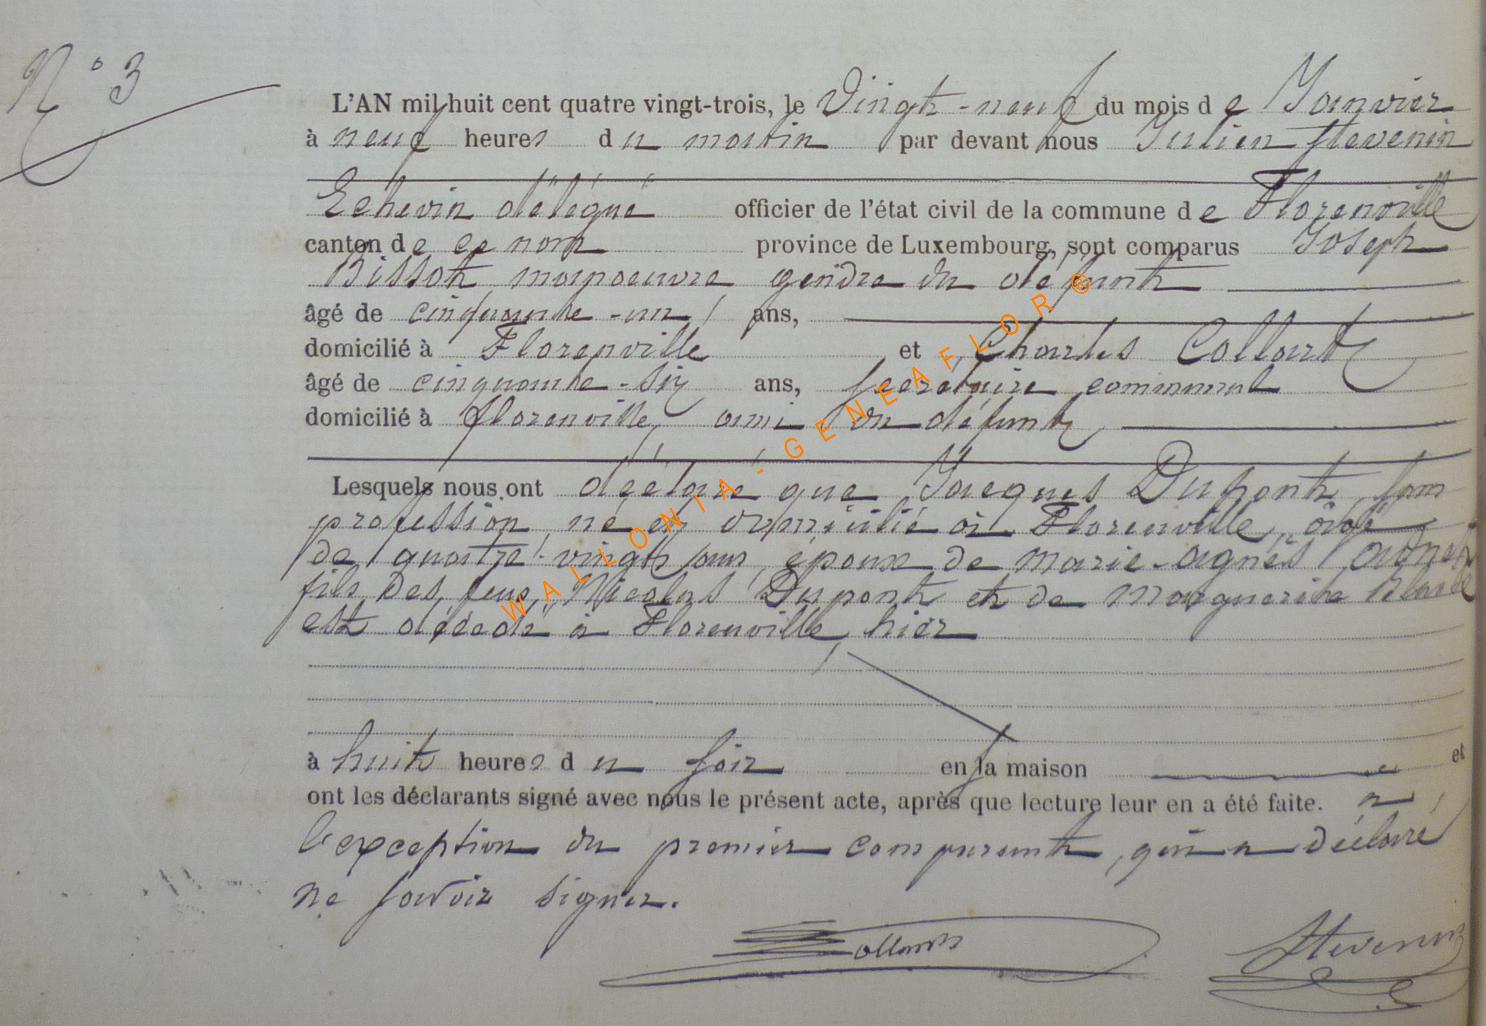 N° 3
L'AN mil huit cent quatre vingt-trois, le Vingt-neuf du mois de Janvier
à neuf heures du matin par devant nous Julien Stevenin
Echevin délégué officier de l'état civil de la commune de Florenville
canton de ce nom province de Luxembourg, sont comparus Joseph
Bissot manoeuvre gendre du défunt
âgé de cinquante-un ans,
domicilié à Florenville et Charles Collart
âgé de cinquante-six ans, secrétaire communal
domicilié à Florenville, ami du défunt,
Lesquels nous ont déclaré que Jacques Dupont, sans
profession, né et domicilié à Florenville, âgé
de quatre-vingt ans, époux de Marie-Agnès
fils des feus Nicolas Dupont et de Marguerite
est décédé à Florenville, hier
à huit heures du soir en sa maison et
ont les déclarants signé avec nous le présent acte, après que lecture leur en a été faite. à
l'exception du premier comparant, qui a déclaré
ne savoir signer.
Collart Stevenin
WALLONIA-GENEAFLOR®